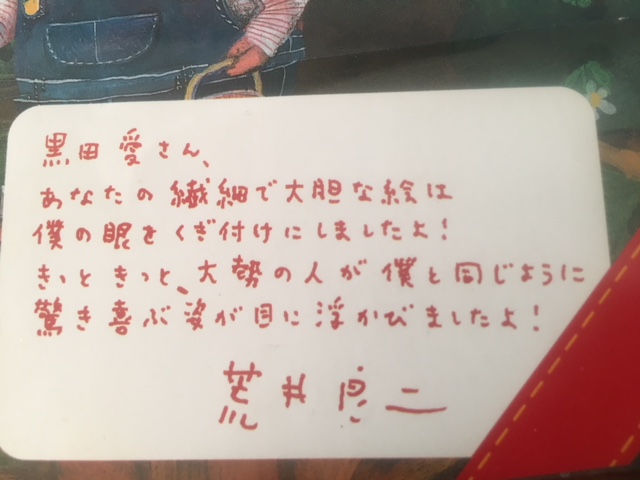 黒田愛さん、
あなたの繊細で大胆な絵は
僕の眼をくぎ付けにしましたよ!
きっときっと、大勢の人が僕と同じように
驚き喜ぶ姿が目に浮かびましたよ!
荒井良二